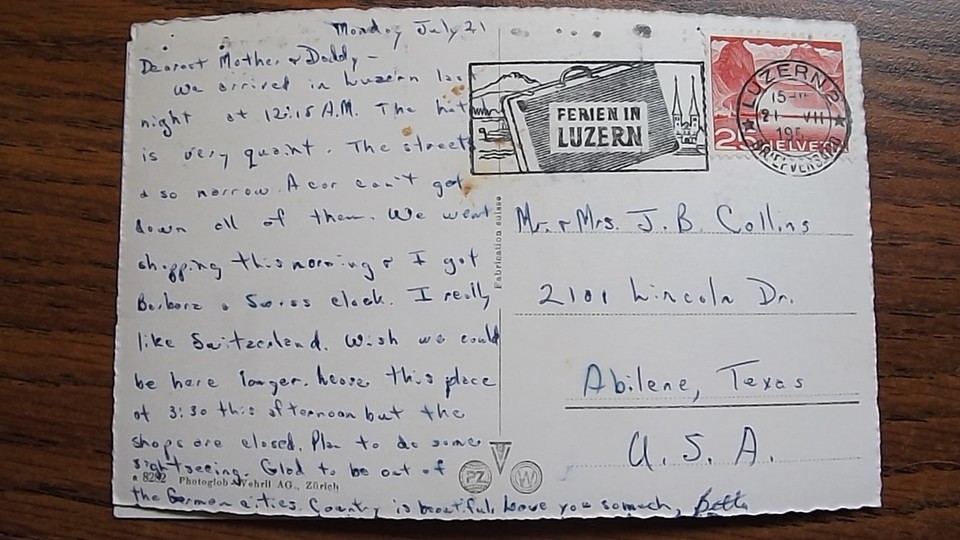 Monday July 21
Dearest Mother & Daddy –
We arrived in Luzern las
night at 12:15 A.M. The hot
is very quaint. The street
& so narrow. A car can't get
down all of them. We went
shopping this morning & I got
Barbara a Swiss clock. I really
like Switzerland. Wish we could
be here longer. Leave this place
at 3:30 this afternoon but the
shops are closed. Plan to do some
sightseeing. Glad to be out of
the German cities. County is beautiful. Love you somuch, Bette
8292 Photoglob-Wehrli AG., Zürich
Fabrication suisse
PZ
W
FERIEN IN
LUZERN
LUZERN 2
15-
21 VII
195
BRIEFVERSAND
25 HELVETIA
Mr. & Mrs. J. B. Collins
2101 Lincoln Dr.
Abilene, Texas
U. S. A.